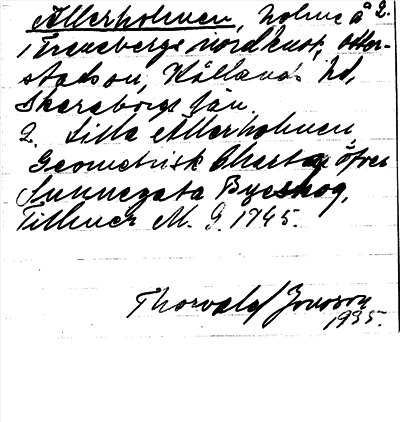 Allerholmen, holme å 2.
i Traneberges nordkust, Otter-
stad sn, Kållands hd,
Skaraborgs län.
2. Lilla Allerholmen
Geometrisk Charta öfver
Sunnegata Byeskog,
M. G. 1745.
Thorvald Jonsson
1935.